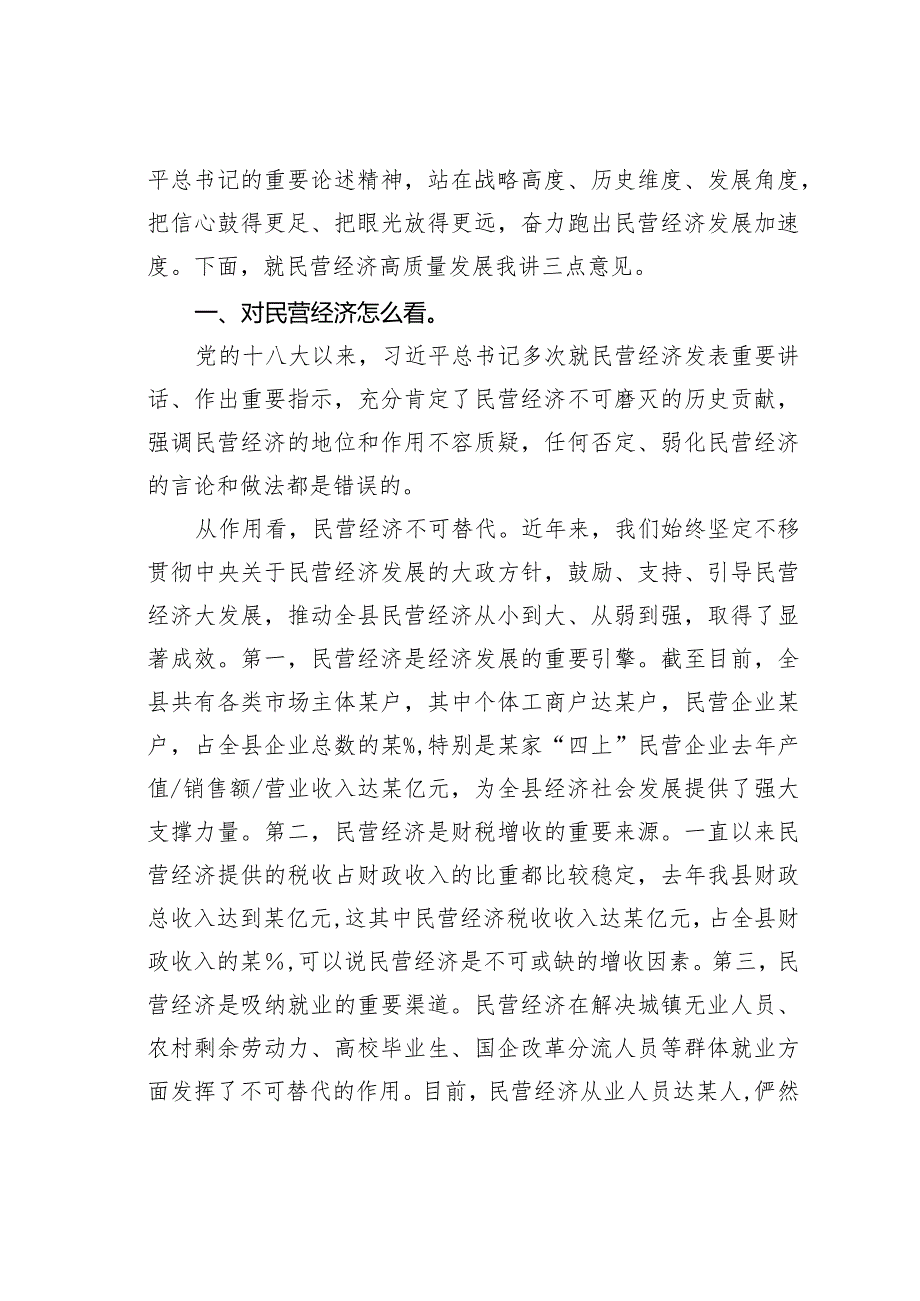 平总书记的重要论述精神，站在战略高度、历史维度、发展角度，
把信心鼓得更足、把眼光放得更远，奋力跑出民营经济发展加速
度。下面，就民营经济高质量发展我讲三点意见。
一、对民营经济怎么看。
党的十八大以来，习近平总书记多次就民营经济发表重要讲
话、作出重要指示，充分肯定了民营经济不可磨灭的历史贡献，
强调民营经济的地位和作用不容质疑，任何否定、弱化民营经济
的言论和做法都是错误的。
从作用看，民营经济不可替代。近年来，我们始终坚定不移
贯彻中央关于民营经济发展的大政方针，鼓励、支持、引导民营
经济大发展，推动全县民营经济从小到大、从弱到强，取得了显
著成效。第一，民营经济是经济发展的重要引擎。截至目前，全
县共有各类市场主体某户，其中个体工商户达某户，民营企业某
户，占全县企业总数的某%,特别是某家“四上”民营企业去年产
值/销售额/营业收入达某亿元，为全县经济社会发展提供了强大
支撑力量。第二，民营经济是财税增收的重要来源。一直以来民
营经济提供的税收占财政收入的比重都比较稳定，去年我县财政
总收入达到某亿元,这其中民营经济税收收入达某亿元，占全县财
政收入的某%,可以说民营经济是不可或缺的增收因素。第三，民
营经济是吸纳就业的重要渠道。民营经济在解决城镇无业人员、
农村剩余劳动力、高校毕业生、国企改革分流人员等群体就业方
面发挥了不可替代的作用。目前，民营经济从业人员达某人,俨然